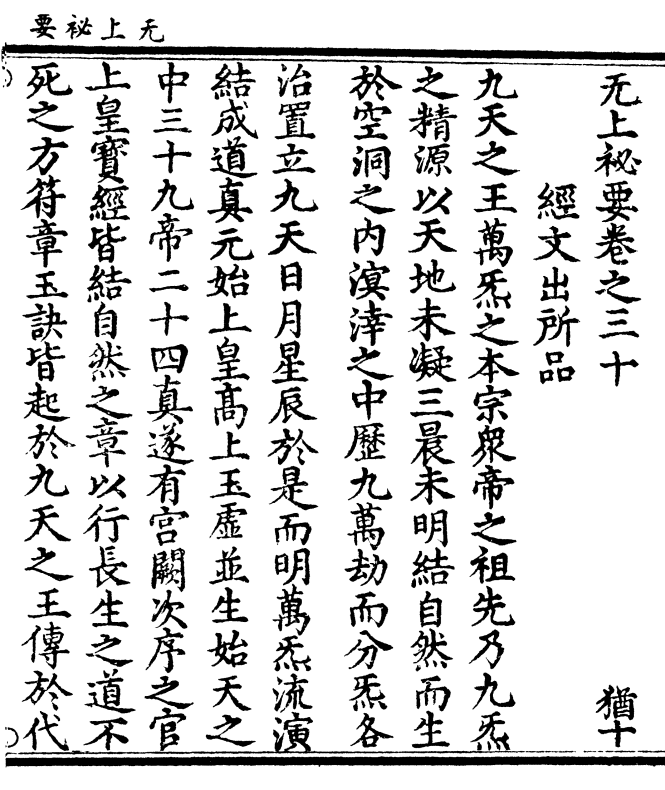 无上祕要
无上祕要卷之三十
猶十
經文出所品
九天之王萬炁之本宗衆帝之祖先乃九炁
之精源以天地未凝三晨未明結自然而生
於空洞之内溟涬之中歷九萬劫而分炁各
治置立九天日月星辰於是而明萬炁流演
結成道真元始上皇高上玉虛並生始天之
中三十九帝二十四真遂有宫闕次序之官
上皇寶經皆結自然之章以行長生之道不
死之方符章玉訣皆起於九天之王傳於代